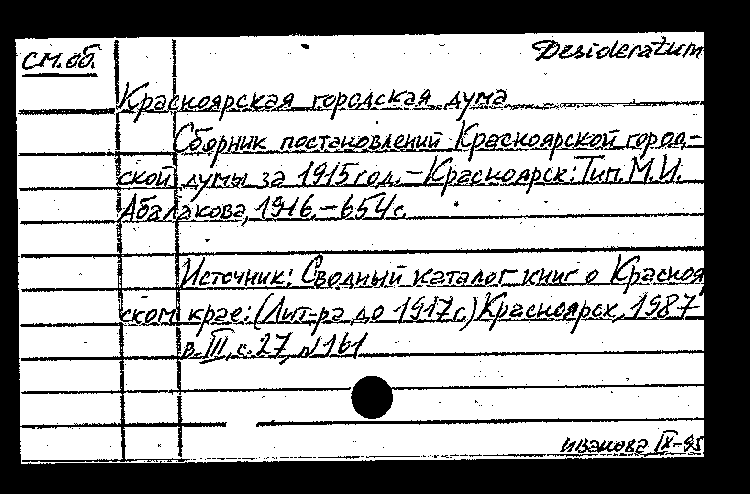 см.об. Desideratum
Красноярская городская дума
Сборник постановлений Красноярской город-
ской думы за 1915 год.-Красноярск: Тип. М.И.
Абалакова, 1916.-654с.
Источник: Сводный каталог книг о Красноя
ском крае: (Лит-ра до 1917г.) Красноярск, 1987
в. III, с. 27, №161
Иванова IX-95